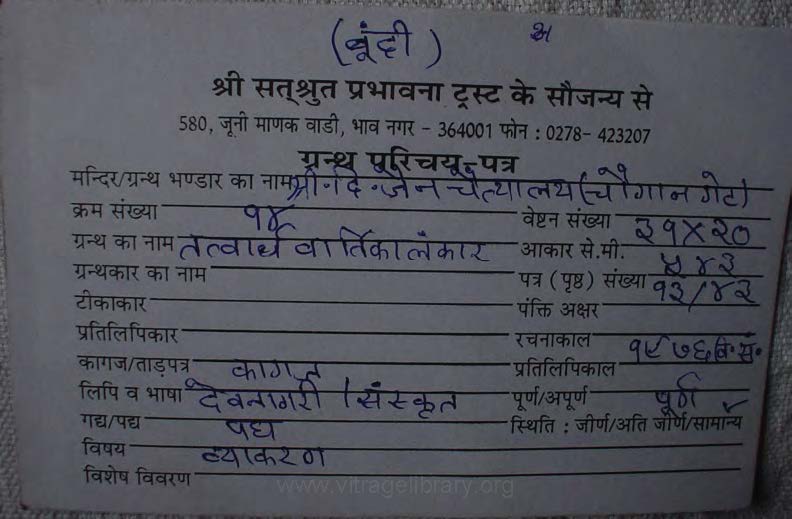 (बूंदी) अ
श्री सत्श्रुत प्रभावना ट्रस्ट के सौजन्य से
580, जूनी माणक वाडी, भाव नगर - 364001 फोन : 0278- 423207
ग्रन्थ परिचय-पत्र
मन्दिर/ग्रन्थ भण्डार का नाम श्री.दि.जैन चैत्यालय (चौगान गेट)
क्रम संख्या १४ वेष्टन संख्या
ग्रन्थ का नाम तत्वार्थ वार्तिकालंकार आकार से.मी. ३१X२०
ग्रन्थकार का नाम पत्र (पृष्ठ) संख्या ५४३
टीकाकार पंक्ति अक्षर १३/४३
प्रतिलिपिकार रचनाकाल
कागज/ताड़पत्र कागज प्रतिलिपिकाल १९७६ वि.सं.
लिपि व भाषा देवनागरी / संस्कृत पूर्ण/अपूर्ण पूर्ण
गद्य/पद्य पद्य स्थिति : जीर्ण/अति जीर्ण/सामान्य ✓
विषय व्याकरण
विशेष विवरण
www.vitragelibrary.org